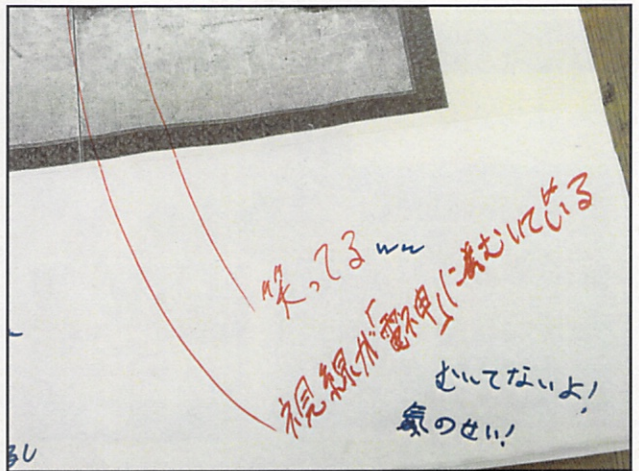 笑ってるwww
視線が「電神」にむいている
むいてないよ!
気のせい!
るし